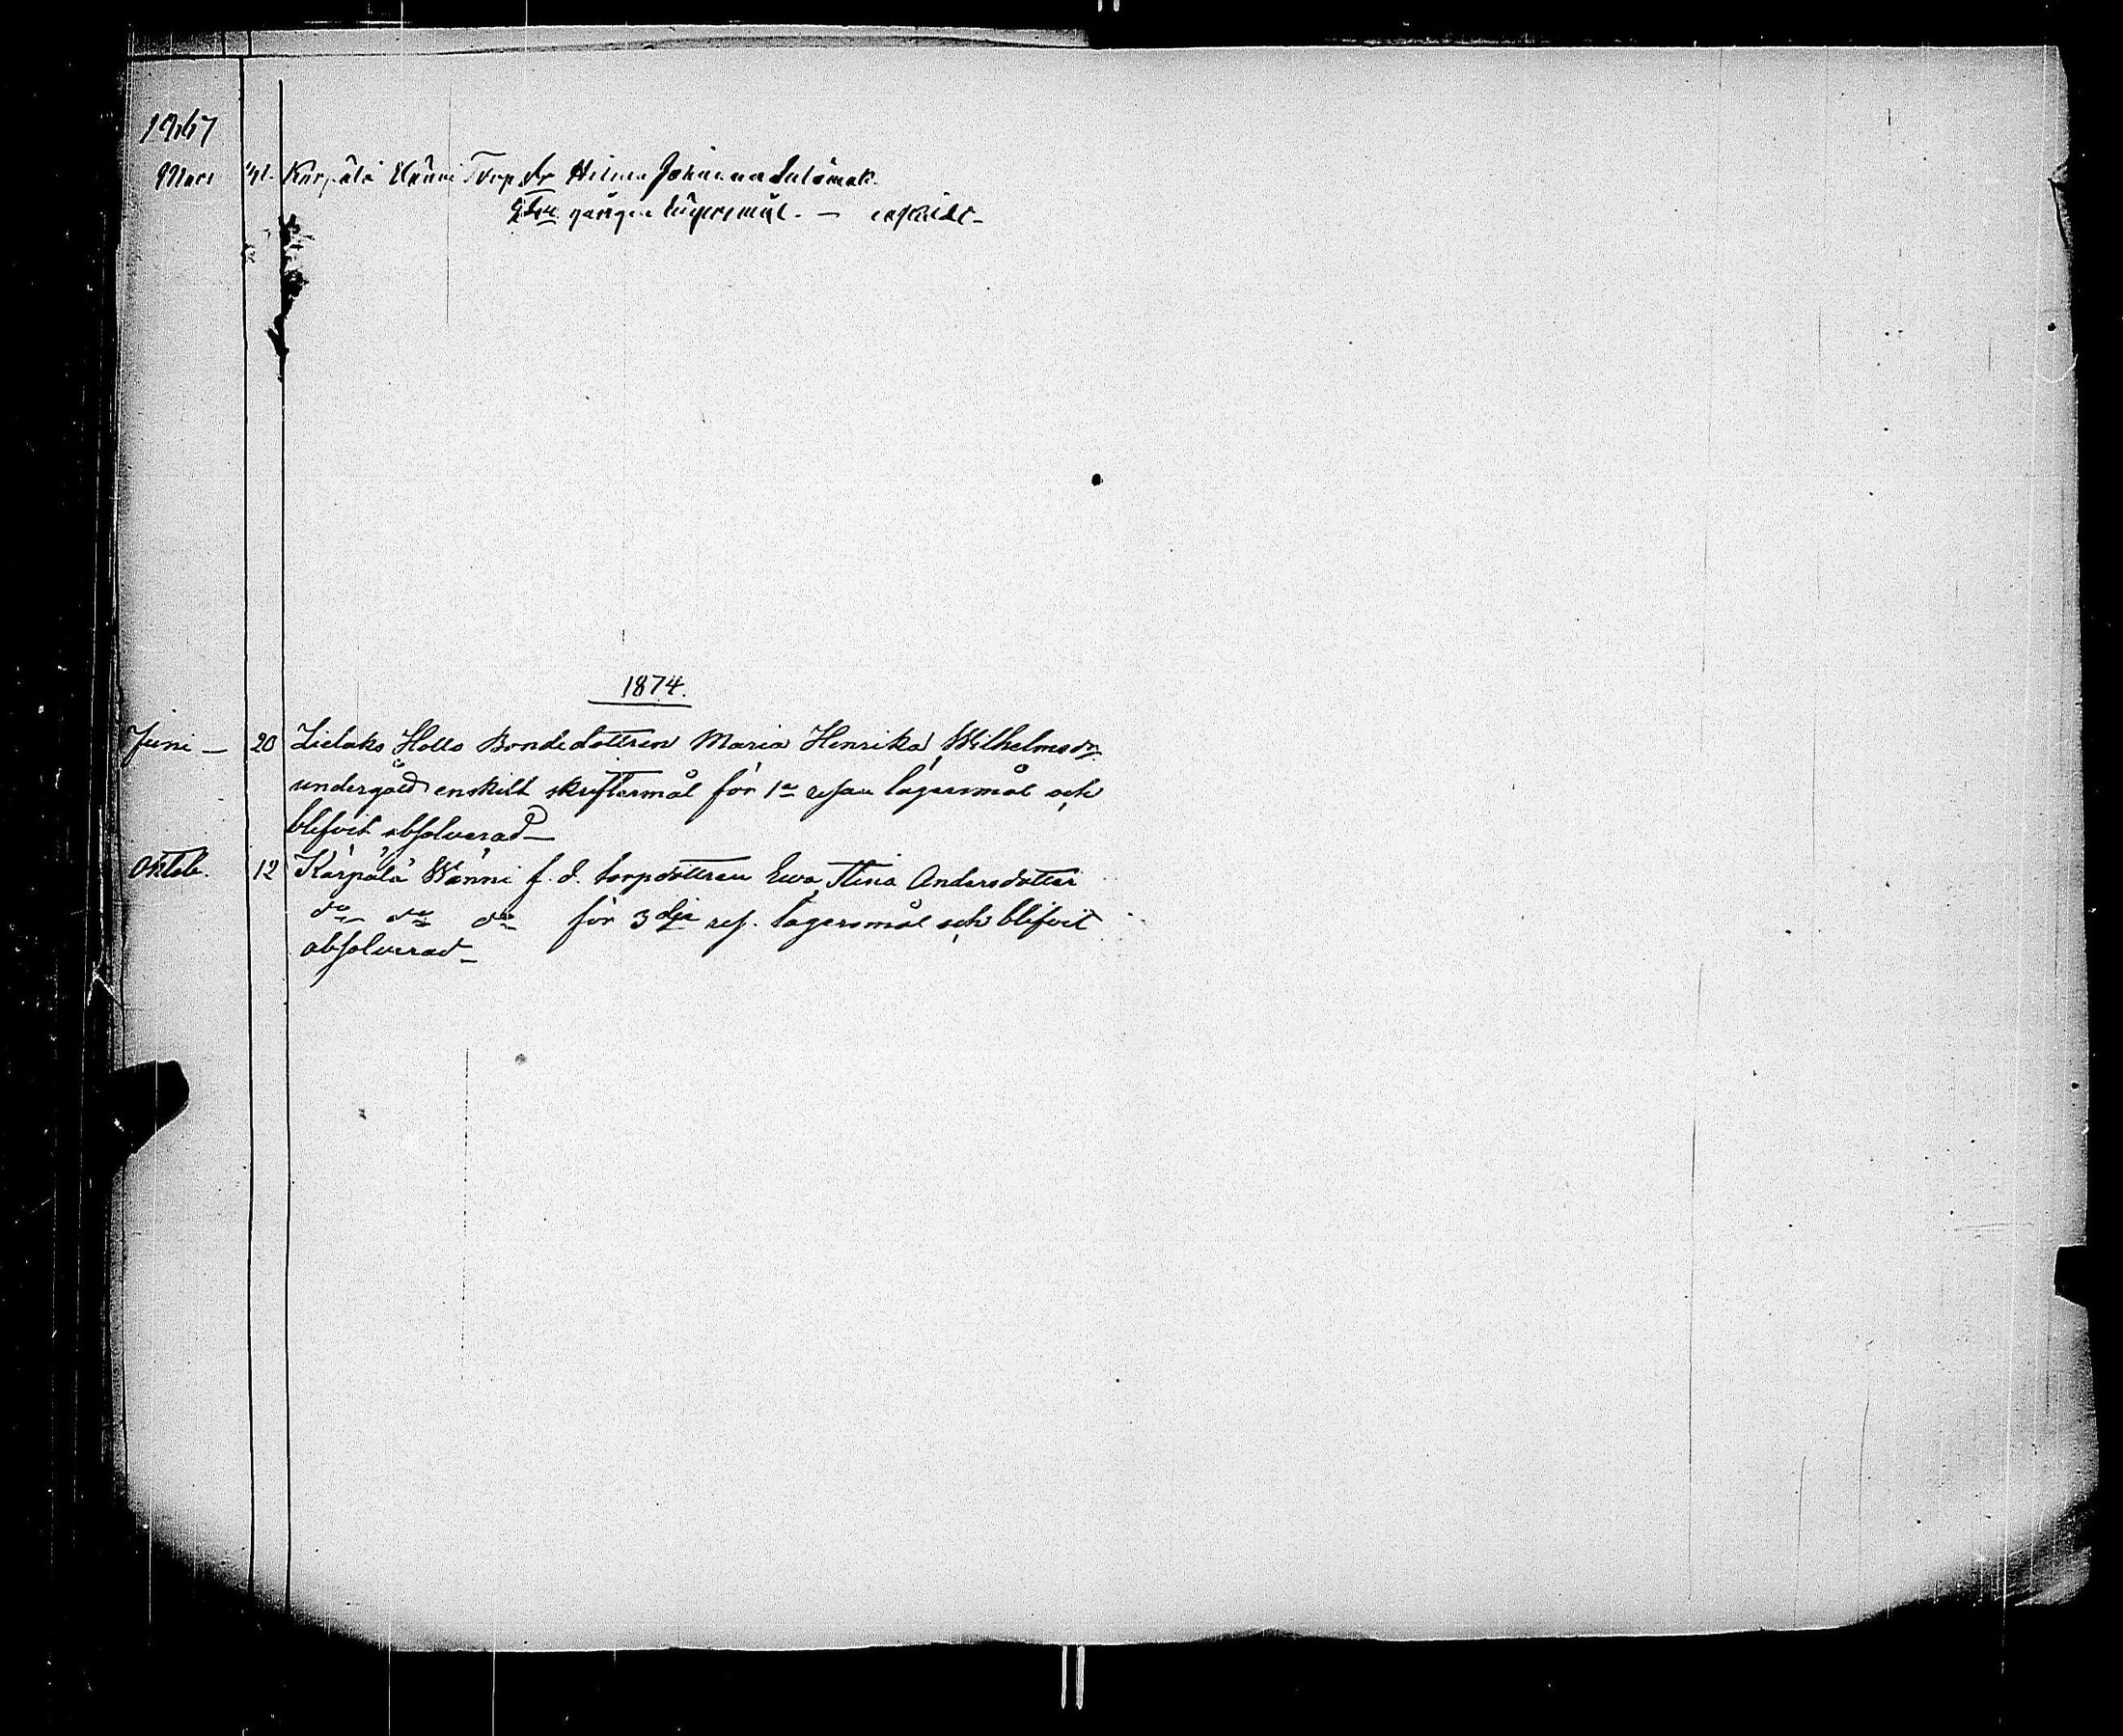 1867
Mars Kärpälä Wänni Torp dr Hilma Johanna
gången lägersmål. — enskildt —
1874.
Juni — 20 Lielaks Hollo Bondedottren Maria Henrika Wilhelmsdr
undergått enskilt skriftermål för 1a resan lägersmål och
blifvit absolverad —
Oktob. 12 Kärpälä Wänni f. d. torpdottren Ewa Stina Andersdotter
do do do för 3dje res. lägersmål och blifvit
absolverad —